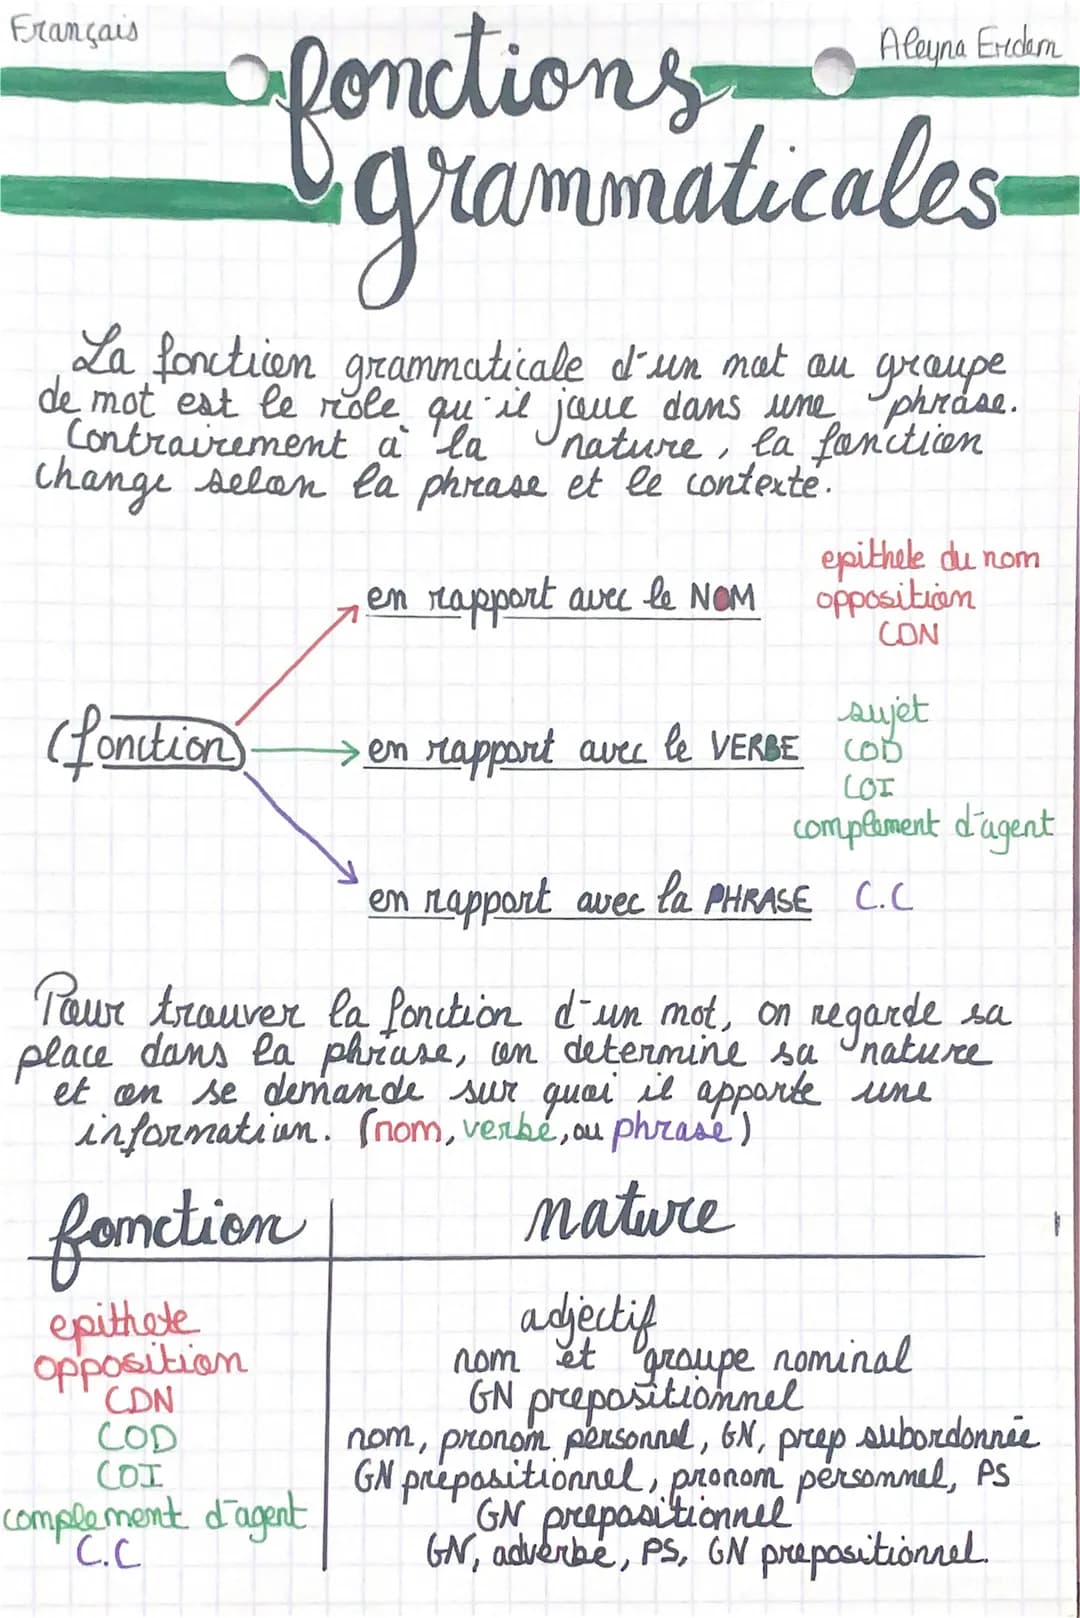 Français
Aleyna Erdem
fonctions
grammaticales
La fonction grammaticale d'un mot ou groupe
de mot est le rôle qu'il joue dans une phrase.
Contrairement à la nature, la fonction
change selon la phrase et le contexte.
epithete du nom
en rapport avec le NOM
opposition
CDN
sujet
fonction
en rapport avec le VERBE
COD
COI
complement d'agent
en rapport avec la PHRASE
C.C
Pour trouver la fonction d'un mot, on regarde sa
place dans la phrase, on determine sa nature
et on se demande sur quoi il apporte une
information. (nom, verbe, ou phrase)
fonction
nature
epithete
adjectif
opposition
nom et groupe nominal
CDN
GN prepositionnel
COD
nom, pronom personnel, GN, prep subordonnée
COI
GN prepositionnel, pronom personnel, PS
complement d'agent
GN prepositionnel
C.C
GN, adverbe, PS, GN prepositionnel.